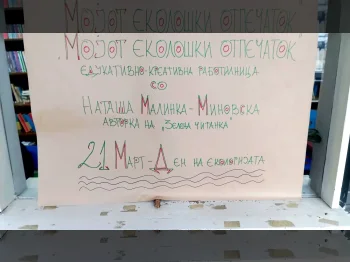 "МОЈОТ ЕКОЛОШКИ ОТПЕЧАТОК"
"МОЈОТ ЕКОЛОШКИ ОТПЕЧАТОК"
ЕДУКАТИВНО-КРЕАТИВНА РАБОТИЛНИЦА
СО
НАТАША МАЛИНКА-МИНОВСКА
АВТОРКА НА "ЗЕЛЕНА ЧИТАНКА"
21 МАРТ-ДЕН НА ЕКОЛОГИЈАТА